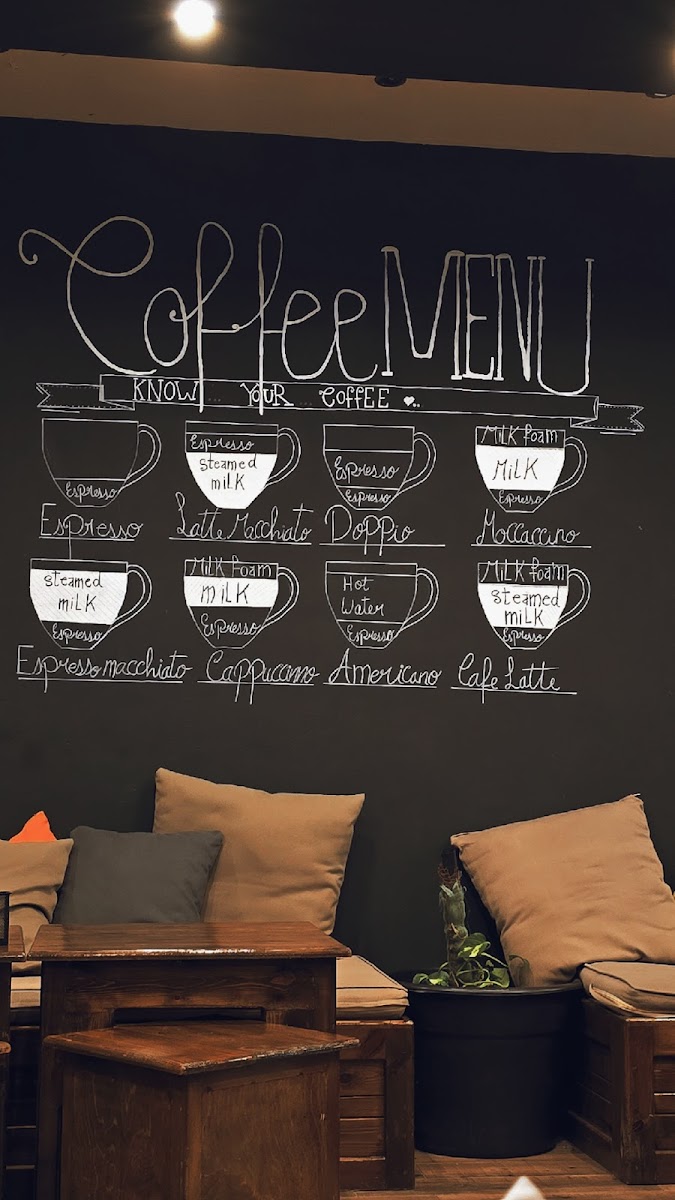 Coffee MENU
KNOW ... YOUR ... COFFEE ♥...
Espresso
Espresso
Espresso
steamed
milk
Latte Macchiato
Espresso
Espresso
Doppio
Milk foam
MiLK
Espresso
Moccaccino
steamed
milk
Espresso
Espresso macchiato
Milk foam
MILK
Espresso
Cappuccino
Hot
Water
Espresso
Americano
Milk foam
Steamed
milk
Espresso
Cafe Latte